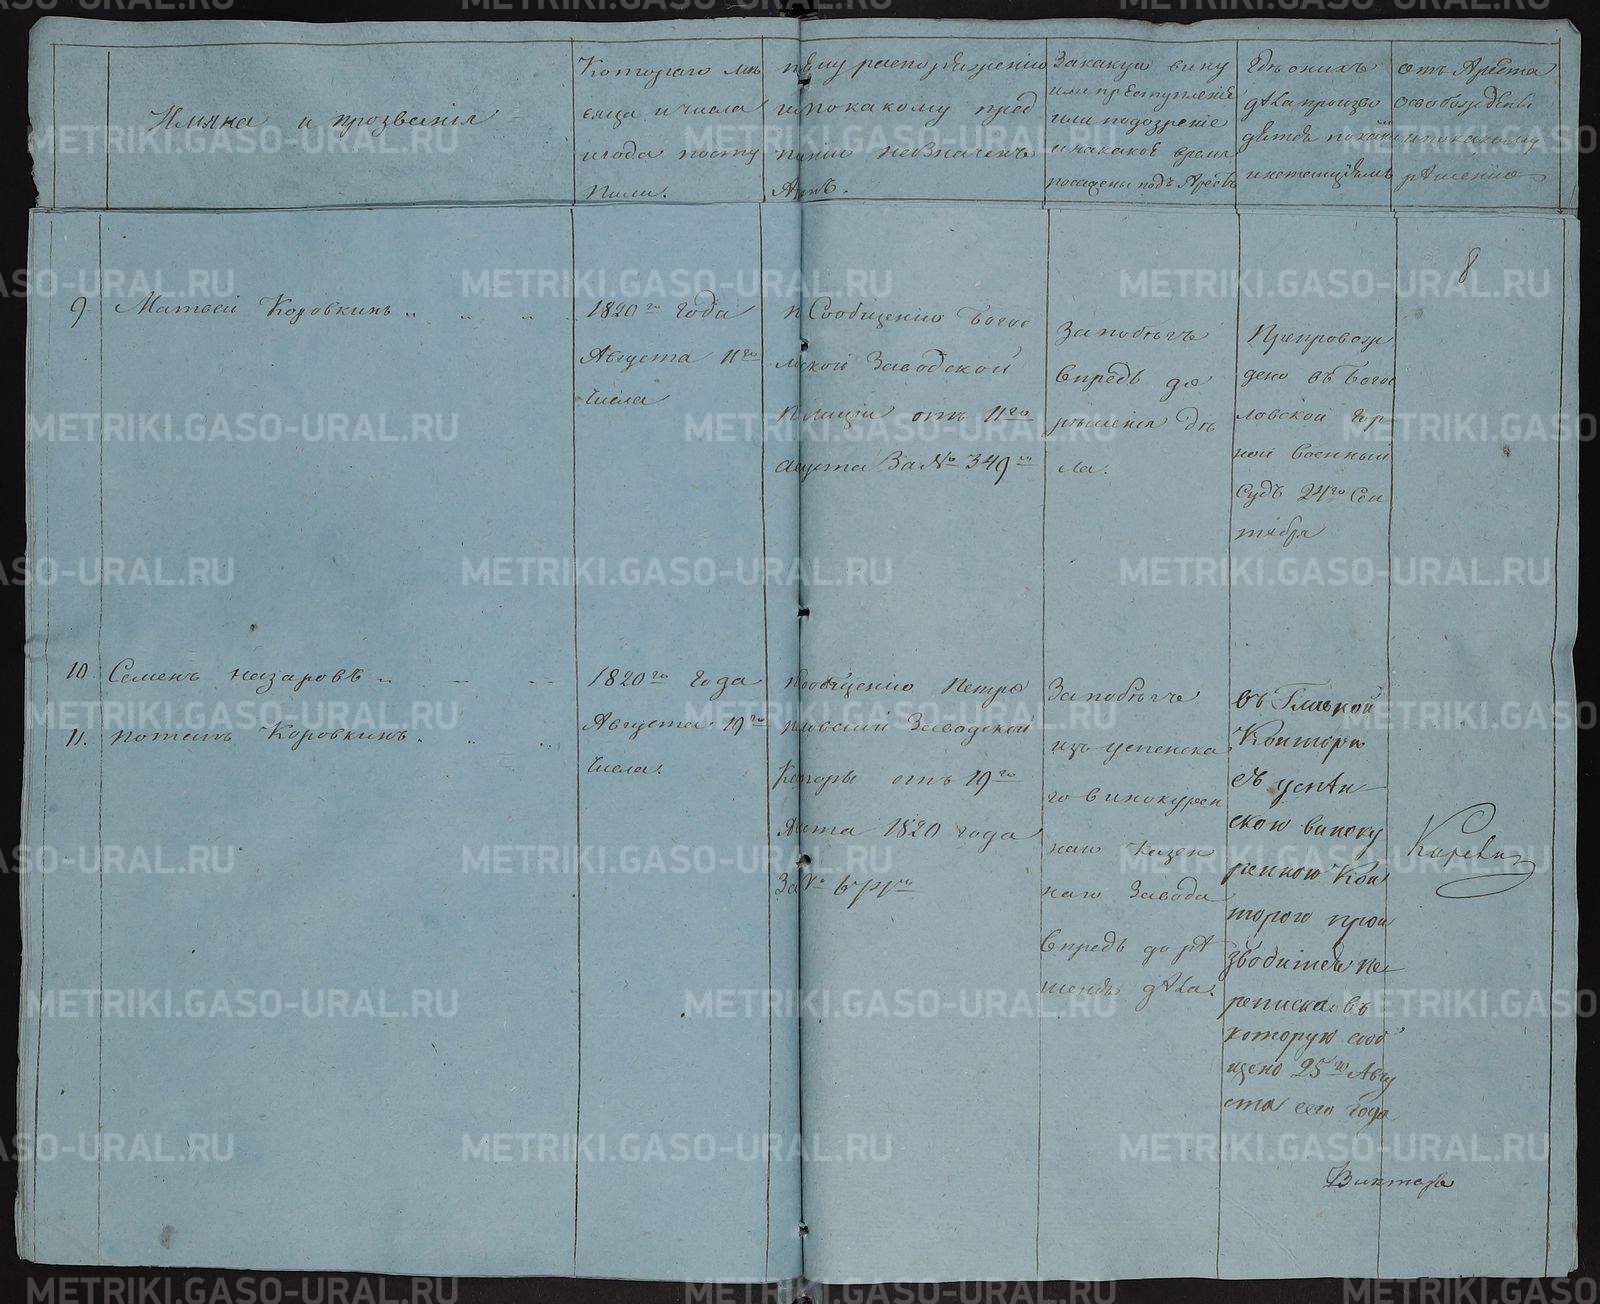 Имяна и прозвания
Котораго мѣ
сяца и числа
и года посту
пили.
чьему распоряжению
и по какому пред
писанию
За какую вину
или преступление
или подозрение
и на какое время
посажены подъ Арестъ
Где оныхъ
дѣла произво
дятся
от Ареста
освобождены
и по какому
рѣшению
8
9. Матвей Коровкинъ
1820го года
Августа 11го
числа
Сообщению Богос
ловской Заводской
Полиции отъ 11го
августа За № 349м
За побѣгъ
впредь до
рѣшения дѣ
ла.
Препровож
дено въ Богос
ловской Гор-
ной военный
Судъ 24го Сен
тября
10 Семенъ Назаровъ
11. Потапъ Коровкинъ
1820го года
Августа 19го
числа.
Сообщению Петро
павловской Заводской
Конторы отъ 19го
Августа 1820 года
За №
За побѣгъ
изъ успенска
го винокурен
наго казен
наго Завода
впредь до рѣ
шения дѣла.
въ Главной
Конторе
съ успен
скою виноку
ренною Кон
торою прои
зводится пе-
реписка въ
которую сооб
щено 25го Авгу
ста сего года
METRIKI.GASO-URAL.RU